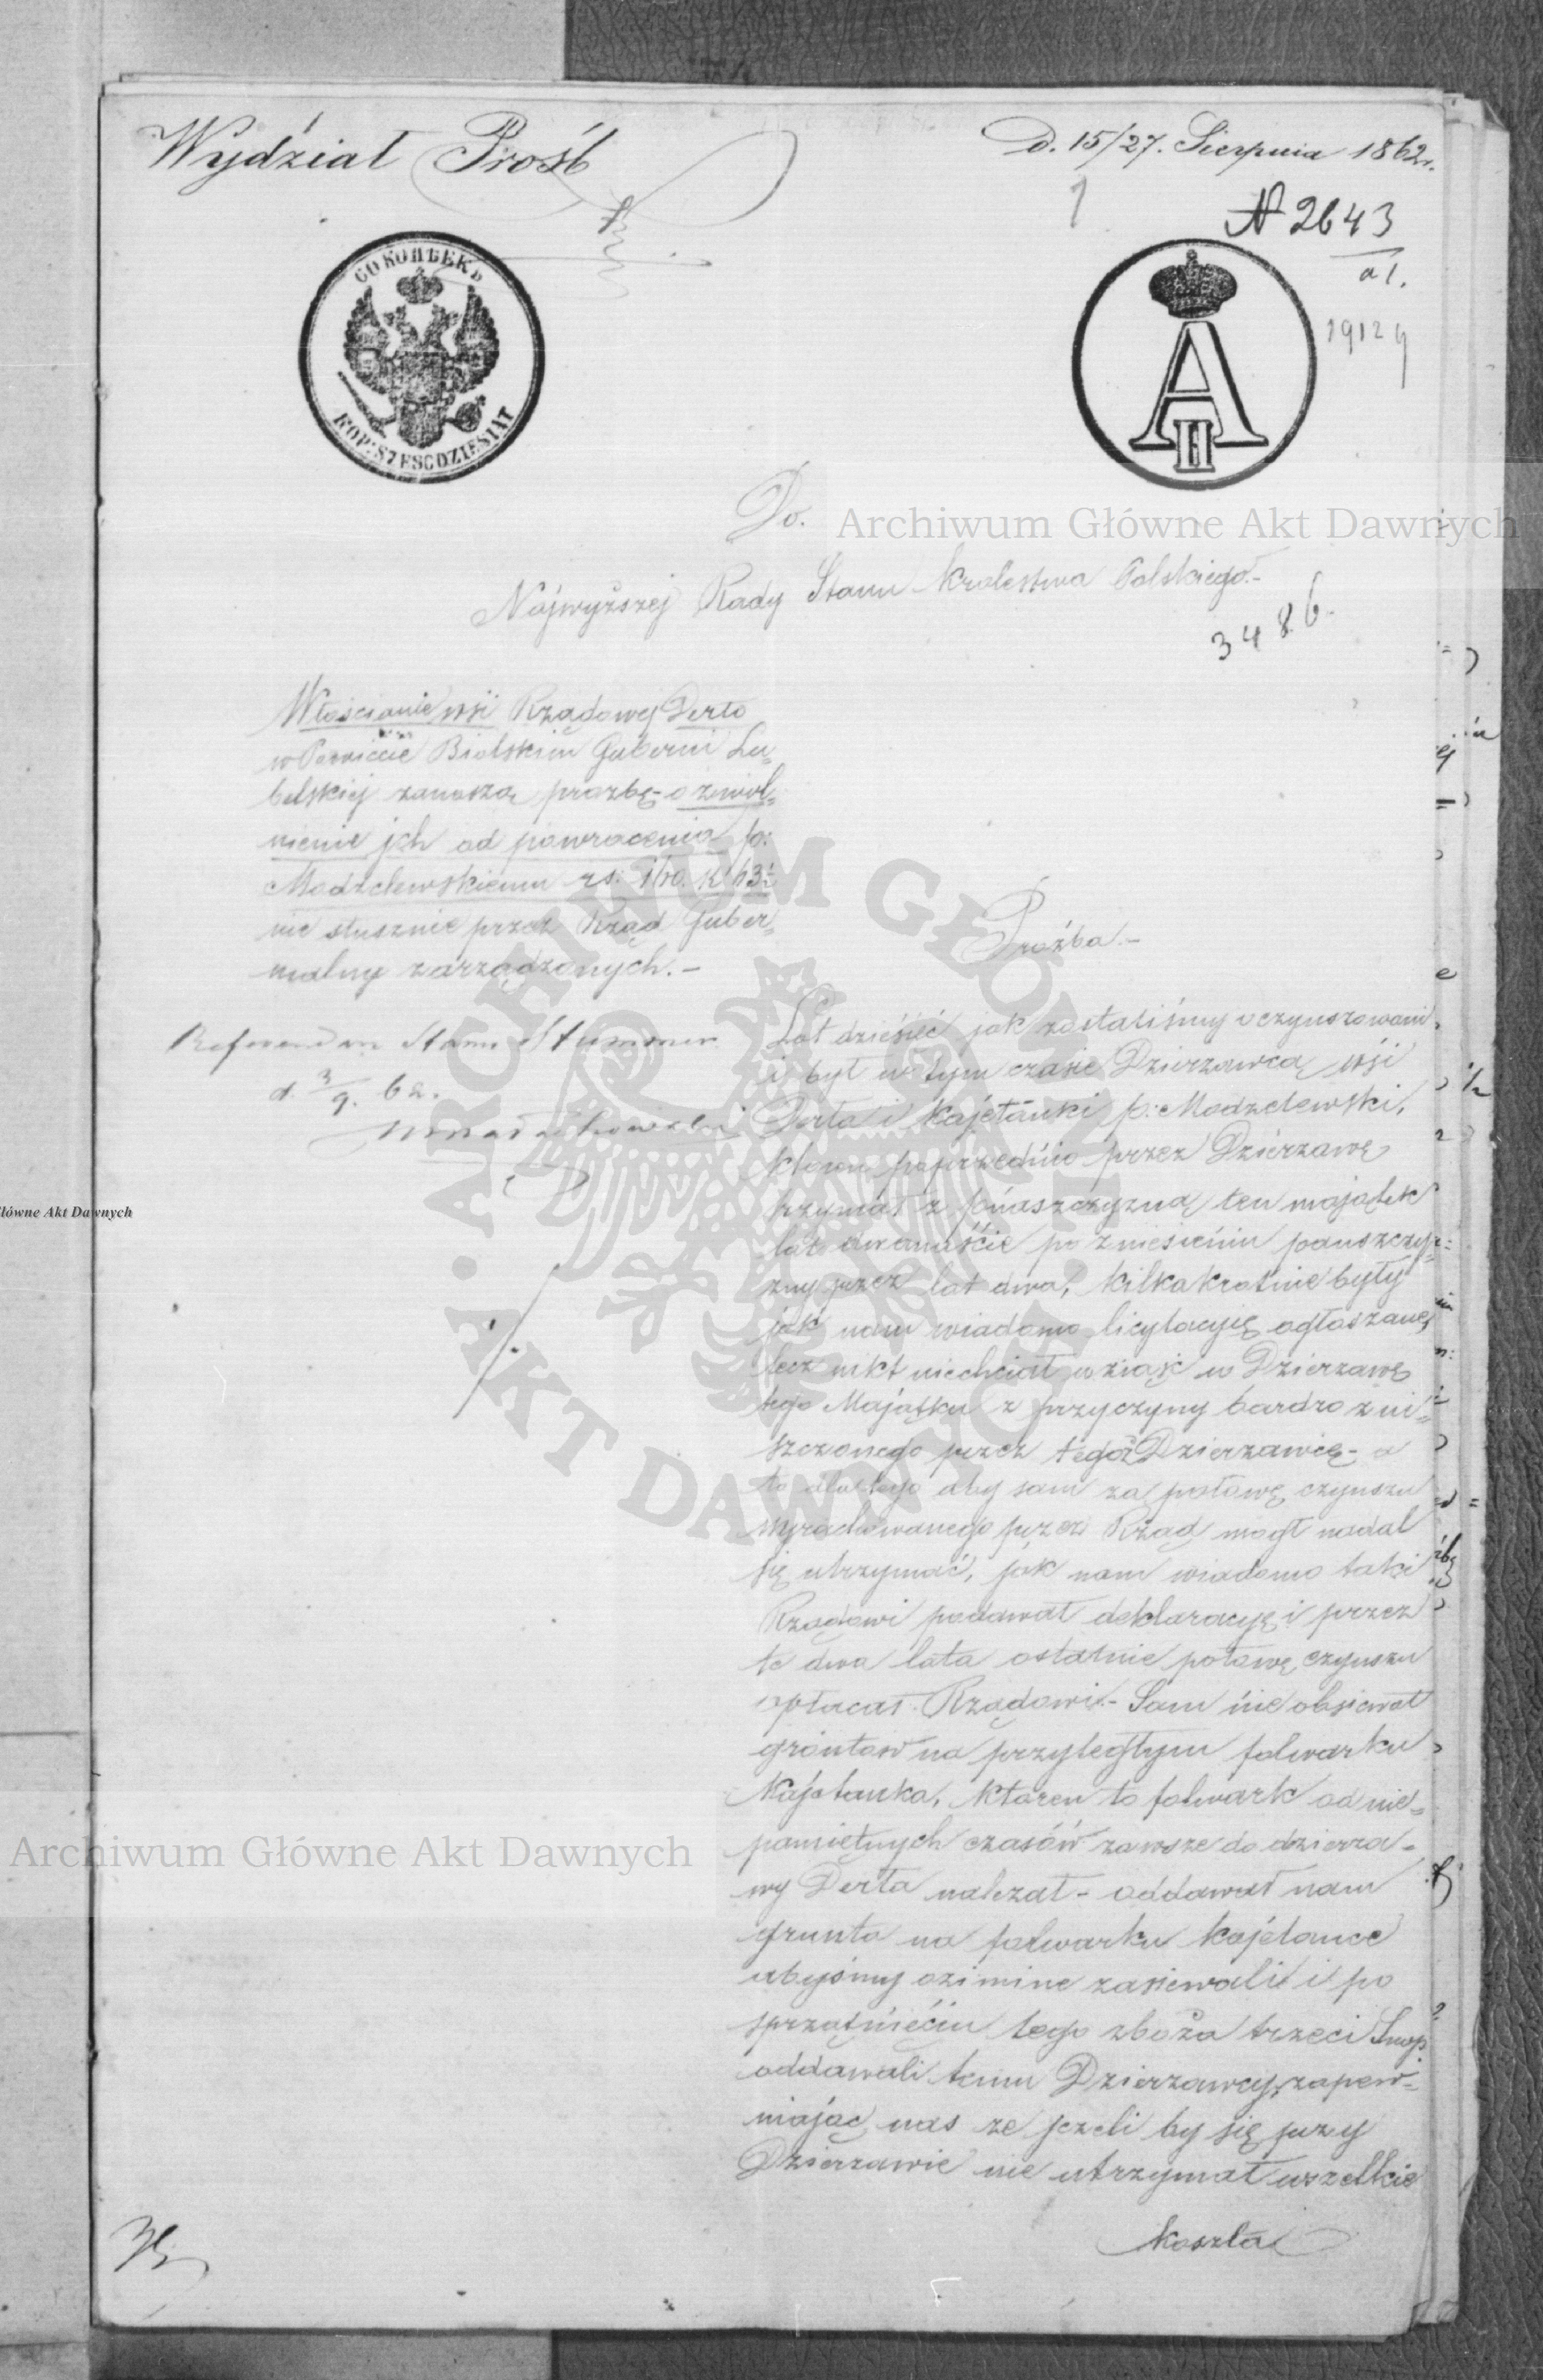 Wydział Prośb
D. 15/27. Sierpnia 1862r.
1
№ 2643
a 1.
19129
60 КОПѢЕКЪ
KOP: SZESCDZIESIAT
A II
Do.
Najwyższej Rady Stanu Krolestwa Polskiego.-
3486.
Włościanie wsi Rządowej Derło
w Powiecie Bialskim Gubernii Lu„
belskiej zanoszą prozbę - o zwol„
nienie jch od powracenia p:
Modzelewskiemu rs: 110. k 13½
nie słusznie przez Rząd Guber„
nialny zarządzonych.-
Proźba.-
Referendarz Stanu Stummer
d. 3/9. 62.
Lat dziesięć jak zostaliśmy oczynszowani
i był w tym czasie Dzierzawcą wśi
Derła i Kajetanki p: Modzelewski,
ktoren poprzednio przez Dzierzawę
trzymał z pańszczyzną ten majątek
lat dwanaśćie po zniesieniu panszczyz„
zny przez lat dwa, kilkakrotnie były
jak nam wiadomo licytacyię ogłaszane,
lecz nikt niechciał wziąść w Dzierzawę
tego Majątku z przyczyny bardzo zni„
szczonego przez tegoż Dzierzawcę - a
to dla tego aby sam za połowę czynszu
wyrachowanego przez Rząd mogł nadal
się utrzymać, jak nam wiadomo takie
Rządowi podawał deklaracyę i przez
te dwa lata ostatnie połowę czynszu
opłacał Rządowi.- Sam nie obsiewał
gróntow na przyległym folwarku
Kajetanka, ktoren to folwark od nie„
pamiętnych czasów zawsze do dzierza„
wy Derła nalezał - oddawał nam
grunta na folwarku Kajetance
abyśmy ozimine zasiewali i po
sprzątnięćiu tego zboża trzeci Snop
oddawali temu Dzierzawcy, zapew„
niając nas ze jezeli by się przy
Dzierzawie nie utrzymał wszelkie
koszta
Archiwum Główne Akt Dawnych
Archiwum Główne Akt Dawnych
łówne Akt Dawnych
ARCHIWUM GŁÓWNE AKT DAWNYCH